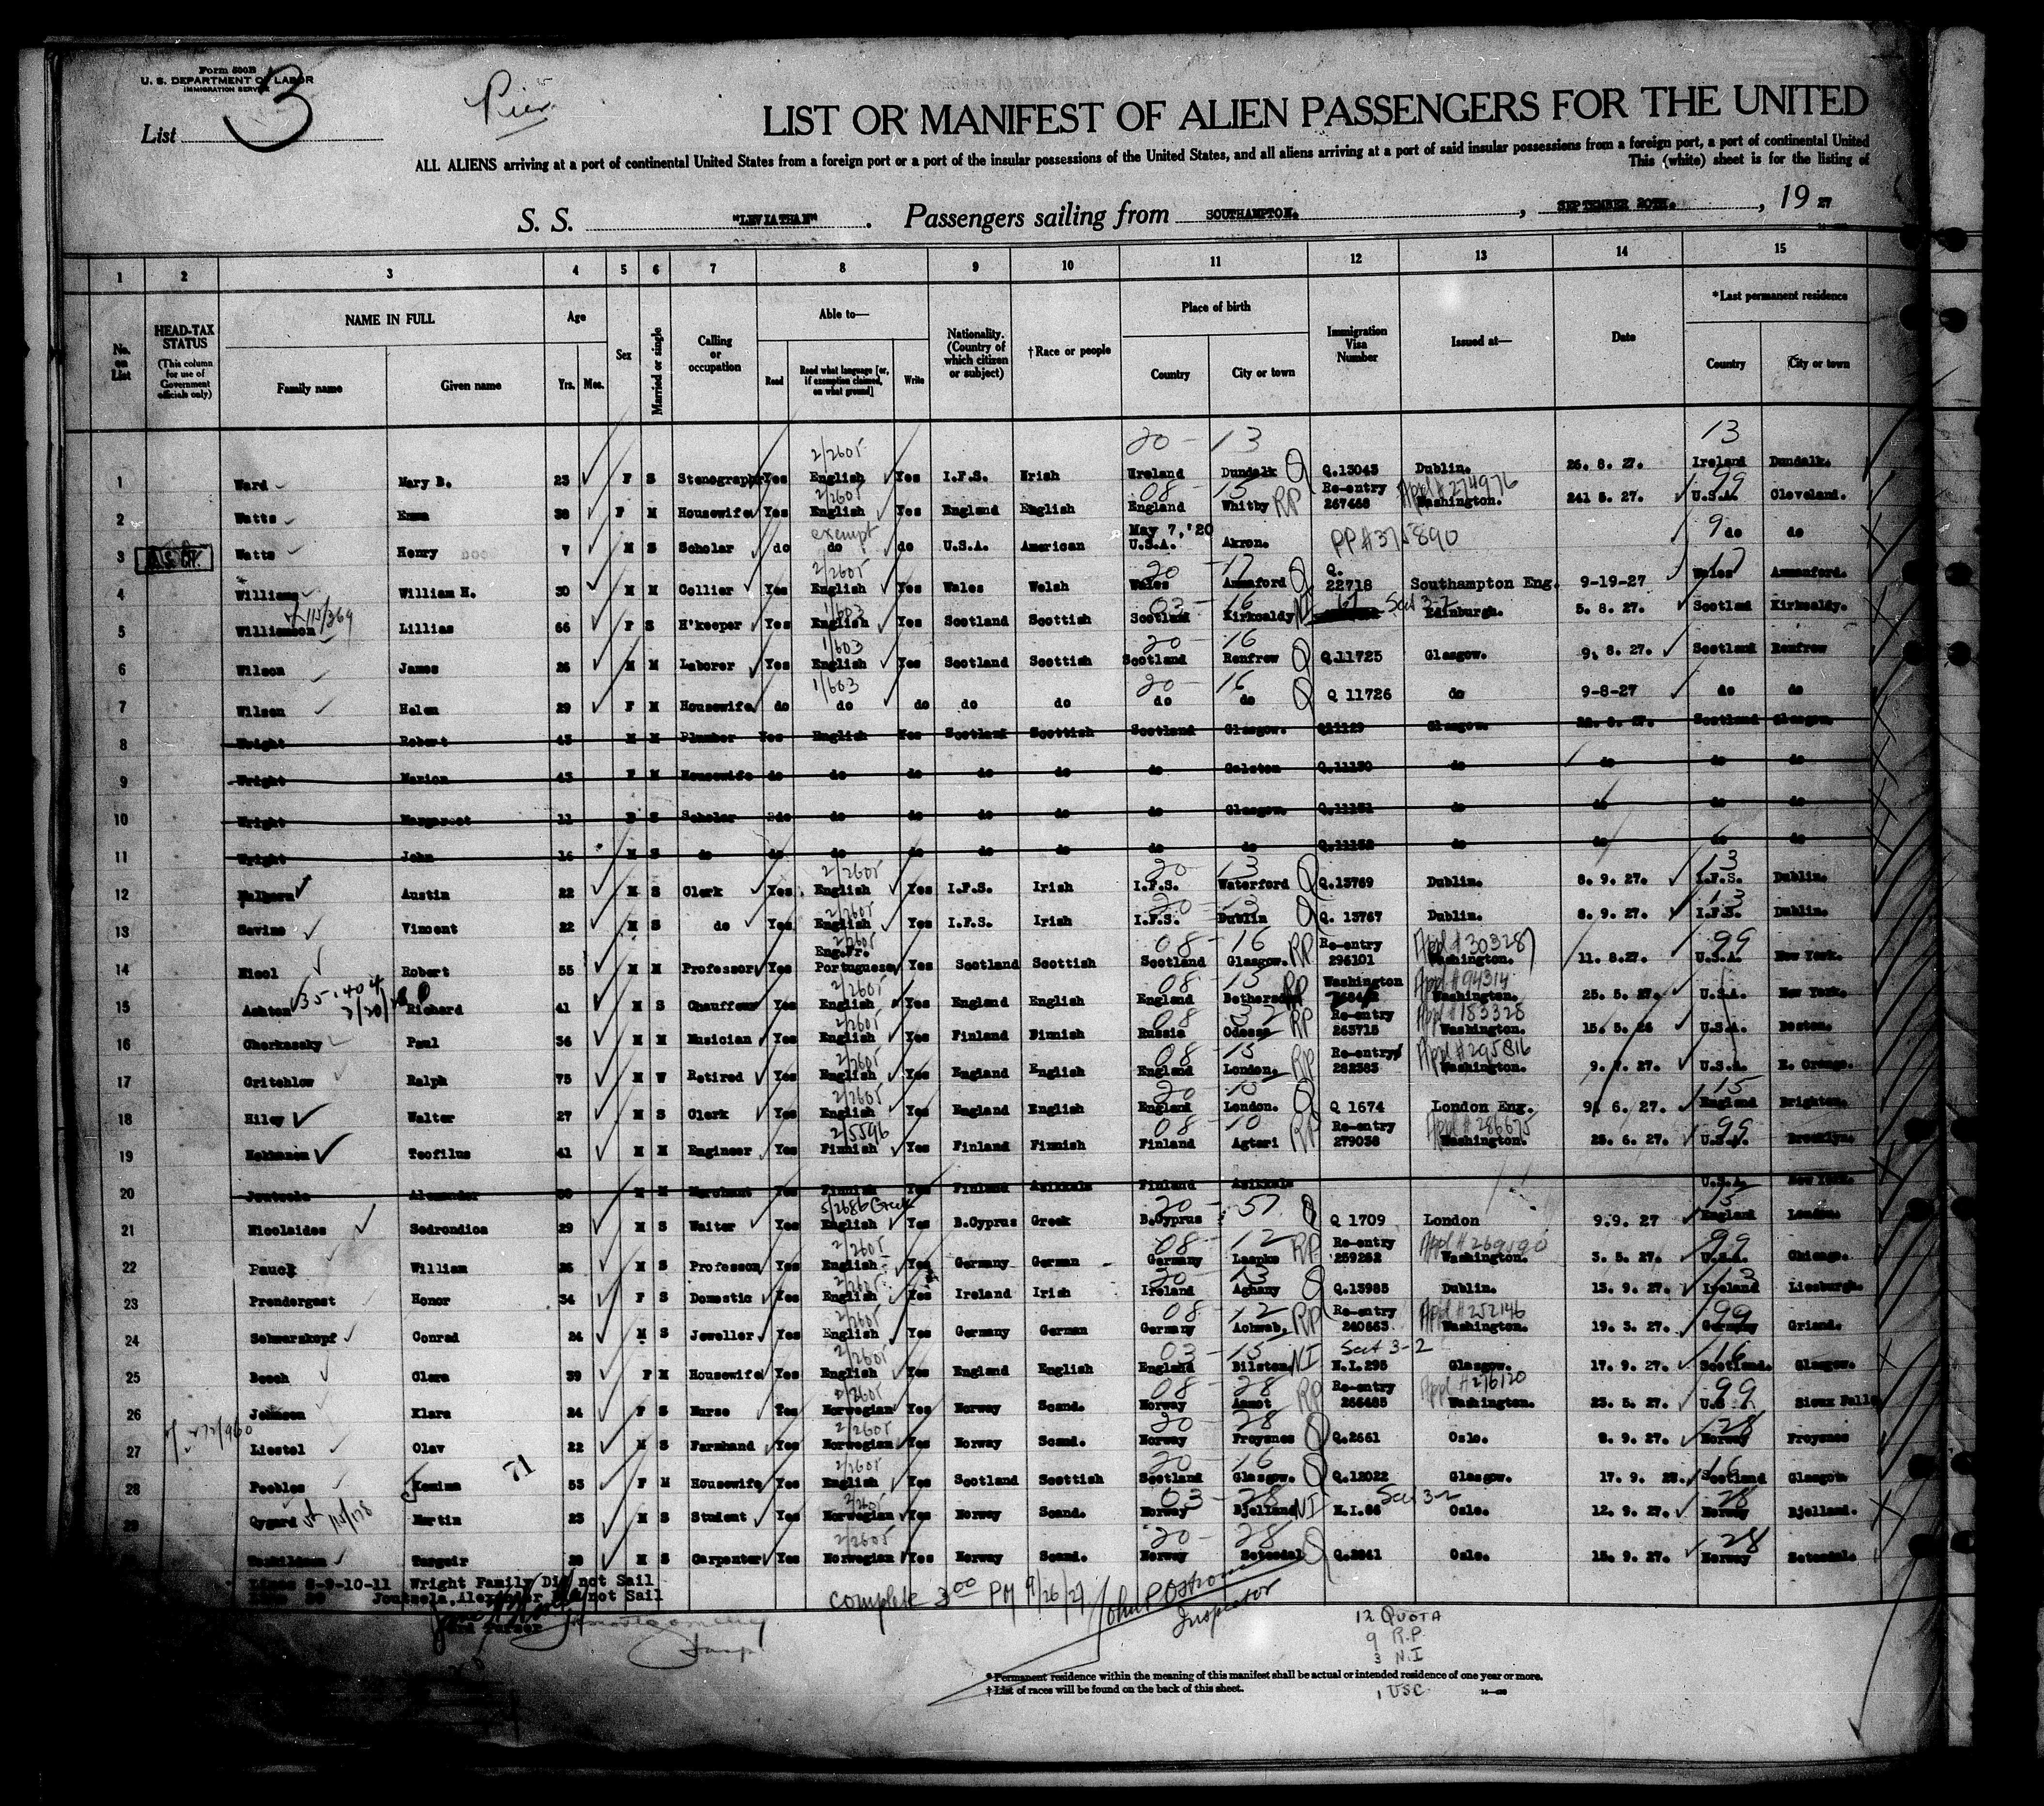 Form 500B
U. S. DEPARTMENT OF LABOR
IMMIGRATION SERVICE
List 3
Pier
LIST OR MANIFEST OF ALIEN PASSENGERS FOR THE UNITED
ALL ALIENS arriving at a port of continental United States from a foreign port or a port of the insular possessions of the United States, and all aliens arriving at a port of said insular possessions from a foreign port, a port of continental United
This (white) sheet is for the listing of
S. S. "LEVIATHAN". Passengers sailing from SOUTHAMPTON. , SEPTEMBER 20TH. , 19 27
1 2 3 4 5 6 7 8 9 10 11 12 13 14 15
No. on List
HEAD-TAX STATUS (This column for use of Government officials only)
NAME IN FULL
Family name Given name
Age Yrs. Mos.
Sex
Married or single
Calling or occupation
Able to—
Read
Read what language [or, if exemption claimed, on what ground]
Write
Nationality. (Country of which citizen or subject)
†Race or people
Place of birth
Country City or town
Immigration Visa Number
Issued at—
Date
*Last permanent residence
Country City or town
20 - 13 13
2/2605
1 Ward Mary B. 23 F S Stenographer Yes English Yes I.F.S. Irish Ireland Dundalk Q Q.13043 Dublin. 26. 8. 27. Ireland Dundalk.
2/2605 08 - 15 Re-entry Appl # 274976 99
2 Watts Emma 38 F M Housewife Yes English Yes England English England Whitby RP 267468 Washington. 241 5. 27. U.S.A. Cleveland.
exempt May 7,'20 9
3 Watts Henry 7 M S Scholar do do do U.S.A. American U.S.A. Akron. PP# 375890 do do
2/2605 20 - 17 Q. 17
4 Williams William H. 30 M M Collier Yes English Yes Wales Welsh Wales Ammaford Q 22718 Southampton Eng. 9-19-27 Wales Ammanford.
1/603 03 - 16 Sect 3-2
5 Williamson Lillias 66 F S H'keeper Yes English Yes Scotland Scottish Scotland Kirkcaldy NI Edinburgh. 5. 8. 27. Scotland Kirkcaldy.
1/603 20 - 16
6 Wilson James 26 M M Laborer Yes English Yes Scotland Scottish Scotland Renfrew Q Q.11725 Glasgow. 9. 8. 27. Scotland Renfrew
1/603 20 - 16
7 Wilson Helen 29 F M Housewife do do do do do do do Q Q 11726 do 9-8-27 do do
8 Wright Robert 43 M M Plumber Yes English Yes Scotland Scottish Scotland Glasgow. Q11129 Glasgow. Scotland Glasgow.
9 Wright Marion 43 F M Housewife do do do do do do Galston Q.11130 do do do do
10 Wright Margaret 11 F S Scholar do do do do do do Glasgow. Q.11131 do do do do
11 Wright John 16 M S do do do do do do do do Q.11132 do do do do
2/2605 20 - 13 13
12 Austin 22 M S Clerk Yes English Yes I.F.S. Irish I.F.S. Waterford Q Q.13769 Dublin. 8. 9. 27. I.F.S. Dublin.
2/2605 20 - 13 13
13 Savino Vincent 22 M S do Yes English Yes I.F.S. Irish I.F.S. Dublin Q Q. 13767 Dublin. 8. 9. 27. I.F.S. Dublin.
2/2605 Eng.Fr. 08 - 16 Re-entry Appl # 303287 99
14 Nicol Robert 55 M M Professor Yes Portuguese Yes Scotland Scottish Scotland Glasgow. RP 296101 Washington. 11. 8.27. U.S.A. New York.
2/2605 08 - 15 Washington Appl # 94314
15 Ashton Richard 41 M S Chauffeur Yes English Yes England English England RP Washington. 25. 5. 27. U.S.A. New York.
2/2605 08 - 32 Re-entry Appl # 183328
16 Cherkassky Paul 36 M M Musician Yes English Yes Finland Finnish Russia Odessa RP 263715 Washington. 15. 5. 26 U.S.A. Boston.
2/2605 08 - 15 Re-entry Appl # 295816
17 Critchlow Ralph 75 M W Retired Yes English Yes England English England London. RP 282383 Washington. 9. 7. 27. U.S.A. E. Orange.
2/2605 20 - 15
18 Hiley Walter 27 M S Clerk Yes English Yes England English England London. Q Q 1674 London Eng. 9. 6. 27. England Brighton.
2/5596 08 - 10 Re-entry Appl # 286675 99
19 Teofilus 41 M M Engineer Yes Finnish Yes Finland Finnish Finland Agteri RP 279038 Washington. 28. 6. 27. U.S.A. Brooklyn.
20 Joutsela Alexander M M Merchant Yes Finnish Yes Finland Asikkala Finland Asikkala U.S.A. New York.
5/2686 Greek 20 - 57 15
21 Nicolaides Sodrondios 29 M S Waiter Yes English Yes B.Cyprus Greek B.Cyprus Q Q 1709 London 9.9. 27 England London.
2/2605 08 - 12 Re-entry Appl # 269190 99
22 Pauck William 26 M S Professor Yes English Yes Germany German Germany Laspke RP 259262 Washington. 3. 5. 27. U.S.A. Chicago.
2/2605 20 13
23 Prendergast Honor 34 F S Domestic Yes English Yes Ireland Irish Ireland Aghany Q Q.13985 Dublin. 13. 9. 27. Ireland Liesburgh.
2/2605 08 - 12 Re-entry Appl # 252146 99
24 Schwarzkopf Conrad 24 M S Jeweller Yes English Yes Germany German Germany Achwab. RP 240663 Washington. 19. 3. 27. Germany Griand.
2/2605 03 - 15 Sect 3-2 16
25 Beech Clara 39 F M Housewife Yes English Yes England English England Bilston NI N.I.295 Glasgow. 17. 9. 27. Scotland. Glasgow.
2/2605 08 - 28 Re-entry Appl # 276120 99
26 Johnson Klara 24 F S Nurse Yes Norwegian Yes Norway Scand. Norway Aamot RP 266485 Washington. 23. 5. 27. U.S Sioux Falls
2/2605 20 - 28 28
27 Liestol Olav 22 M S Farmhand Yes Norwegian Yes Norway Scand. Norway Froysnes Q Q.2661 Oslo. 8. 9. 27. Norway Froysnes
71 2/2605 20 - 16 16
28 Peebles Jemima 53 F M Housewife Yes English Yes Scotland Scottish Scotland Glasgow. Q Q.12022 Glasgow. 17. 9. 28. Scotland Glasgow
2/2605 03 - 28 Sect 3-2 28
29 Oygard Martin 23 M S Student Yes Norwegian Yes Norway Scand. Norway Bjelland NI N.I.86 Oslo. 12. 9. 27. Norway Bjelland.
2/2605 20 - 28 28
Torgeir M S Carpenter Yes Norwegian Yes Norway Scand. Norway Setesdal Q Q.2841 Oslo. 15. 9. 27. Norway Setesdal.
Lines 8-9-10-11 Wright Family Did not Sail
Line 20 Joutsela, Alexander Did not Sail
complete 3 00 PM 9/26/27 John P Ostrom
Inspector
12 QUOTA
9 R.P.
3 N.I
1 USC
* Permanent residence within the meaning of this manifest shall be actual or intended residence of one year or more.
† List of races will be found on the back of this sheet.